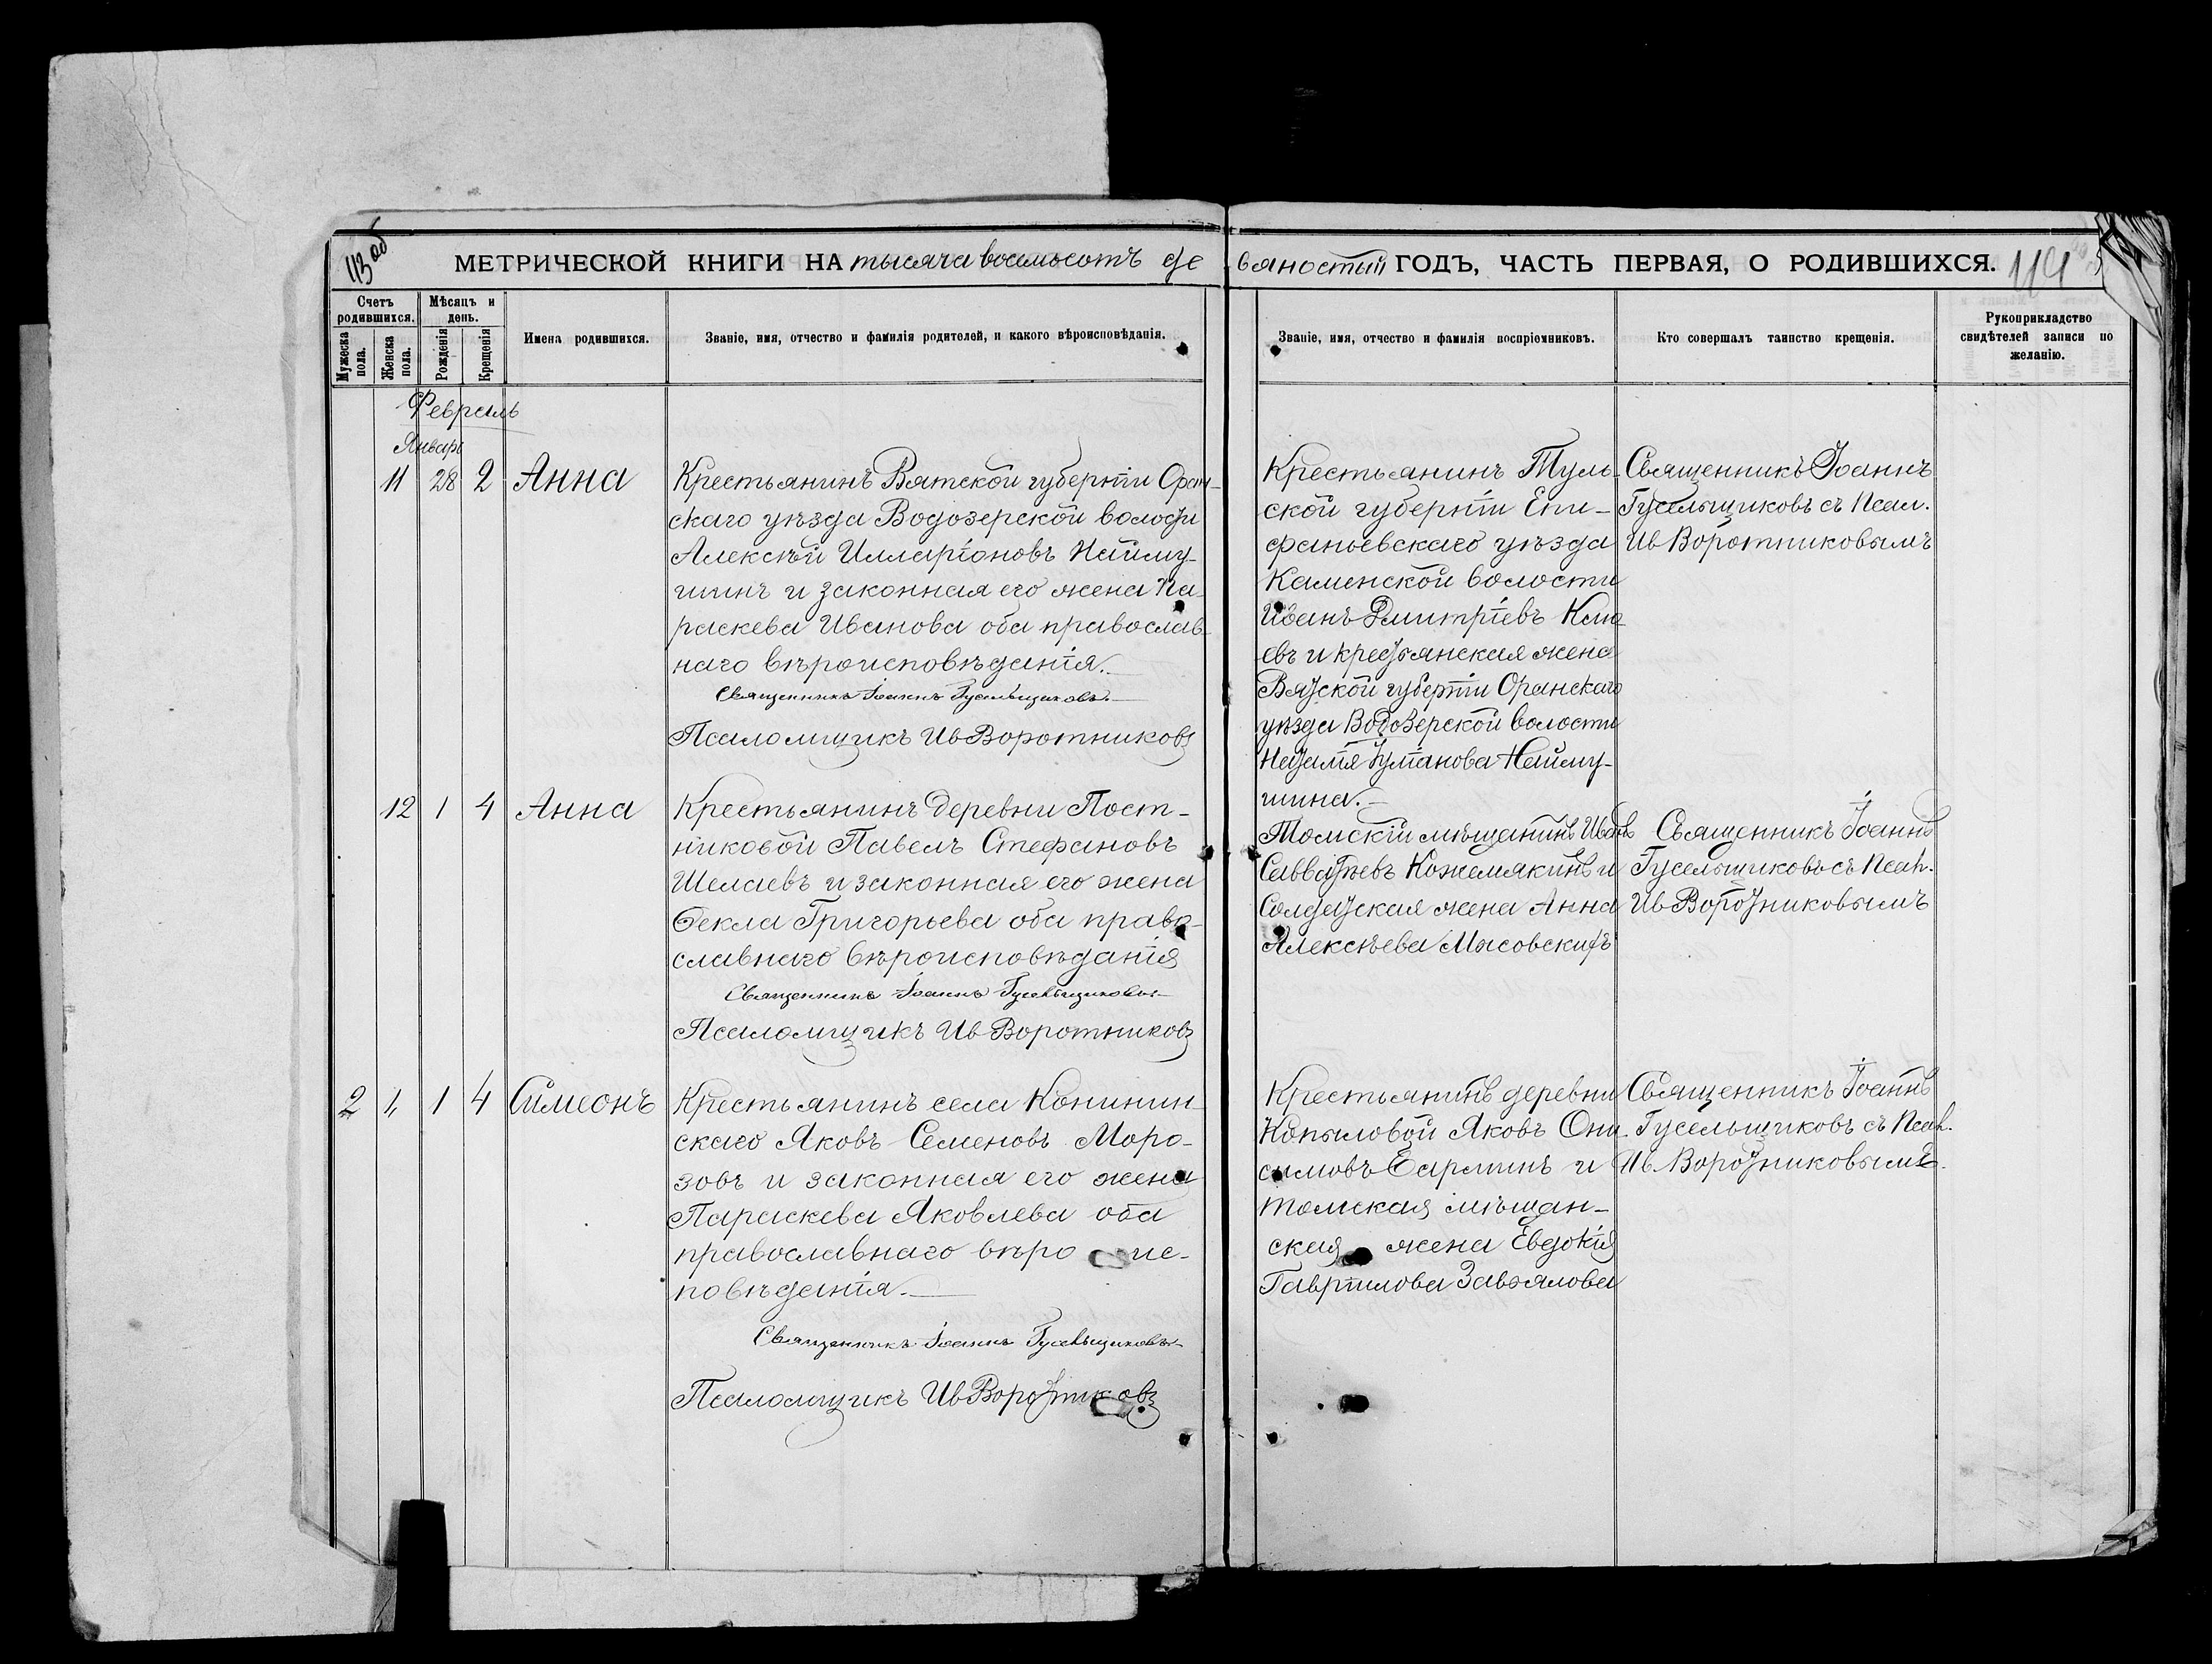 113 об
МЕТРИЧЕСКОЙ КНИГИ НА тысяча восемьсотъ де
вяностый ГОДЪ, ЧАСТЬ ПЕРВАЯ, О РОДИВШИХСЯ. 114
Счетъ родившихся.
Мѣсяцъ и день.
Мужеска пола.
Женска пола.
Рожденія
Крещенія
Имена родившихся.
Званіе, имя, отчество и фамилія родителей, и какого вѣроисповѣданія.
Званіе, имя, отчество и фамилія воспріемниковъ.
Кто совершалъ таинство крещенія.
Рукоприкладство
свидѣтелей записи по
желанію.
Февраль
Январь
11 28 2 Анна
Крестьянинъ Вятской губерніи Орлн-
скаго уѣзда Водозерской волости
Алексѣй Илларіоновъ Найму-
шинъ и законная его жена Па-
раскева Иванова оба православ-
наго вѣроисповѣданія.
Священникъ Іоаннъ Гусельщиковъ.
Псаломщикъ Ив Воротниковъ
Крестьянинъ Туль-
ской губерніи Епи-
фаньевскаго уѣзда
Каменской волости
Иванъ Дмитріевъ Клю-
евъ и крестьянская жена
Вятской губерніи Оранскаго
уѣзда Водозерской волости
Наймy-
шина.
Священникъ Іоаннъ
Гусельщиковъ съ Псал.
Ив Воротниковымъ
12 1 4 Анна
Крестьянинъ деревни Пост-
никовой Павелъ Стефановъ
Шелаевъ и законная его жена
Ѳекла Григорьева оба право-
славнаго вѣроисповѣданія
Священникъ Іоаннъ Гусельщиковъ
Псаломщикъ Ив Воротниковъ
Томскій мѣщанинъ Иванъ
Савватѣевъ Кожемякинъ и
Солдатская жена Анна
Алексѣева Мясовскихъ
Священникъ Іоаннъ
Гусельщиковъ съ Псал.
Ив Воротниковымъ
2 1 4 Симеонъ
Крестьянинъ села Конинин-
скаго Яковъ Семеновъ Моро-
зовъ и законная его жена
Параскева Яковлева оба
православнаго вѣро ис-
повѣданія.
Священникъ Іоаннъ Гусельщиковъ
Псаломщикъ Ив Воротниковъ
Крестьянинъ деревни
Копыловой Яковъ Они-
симовъ и
томская мѣщан-
ская жена Евдокія
Гавріилова Завьялова
Священникъ Іоаннъ
Гусельщиковъ съ Псал.
Ив. Воротниковымъ.